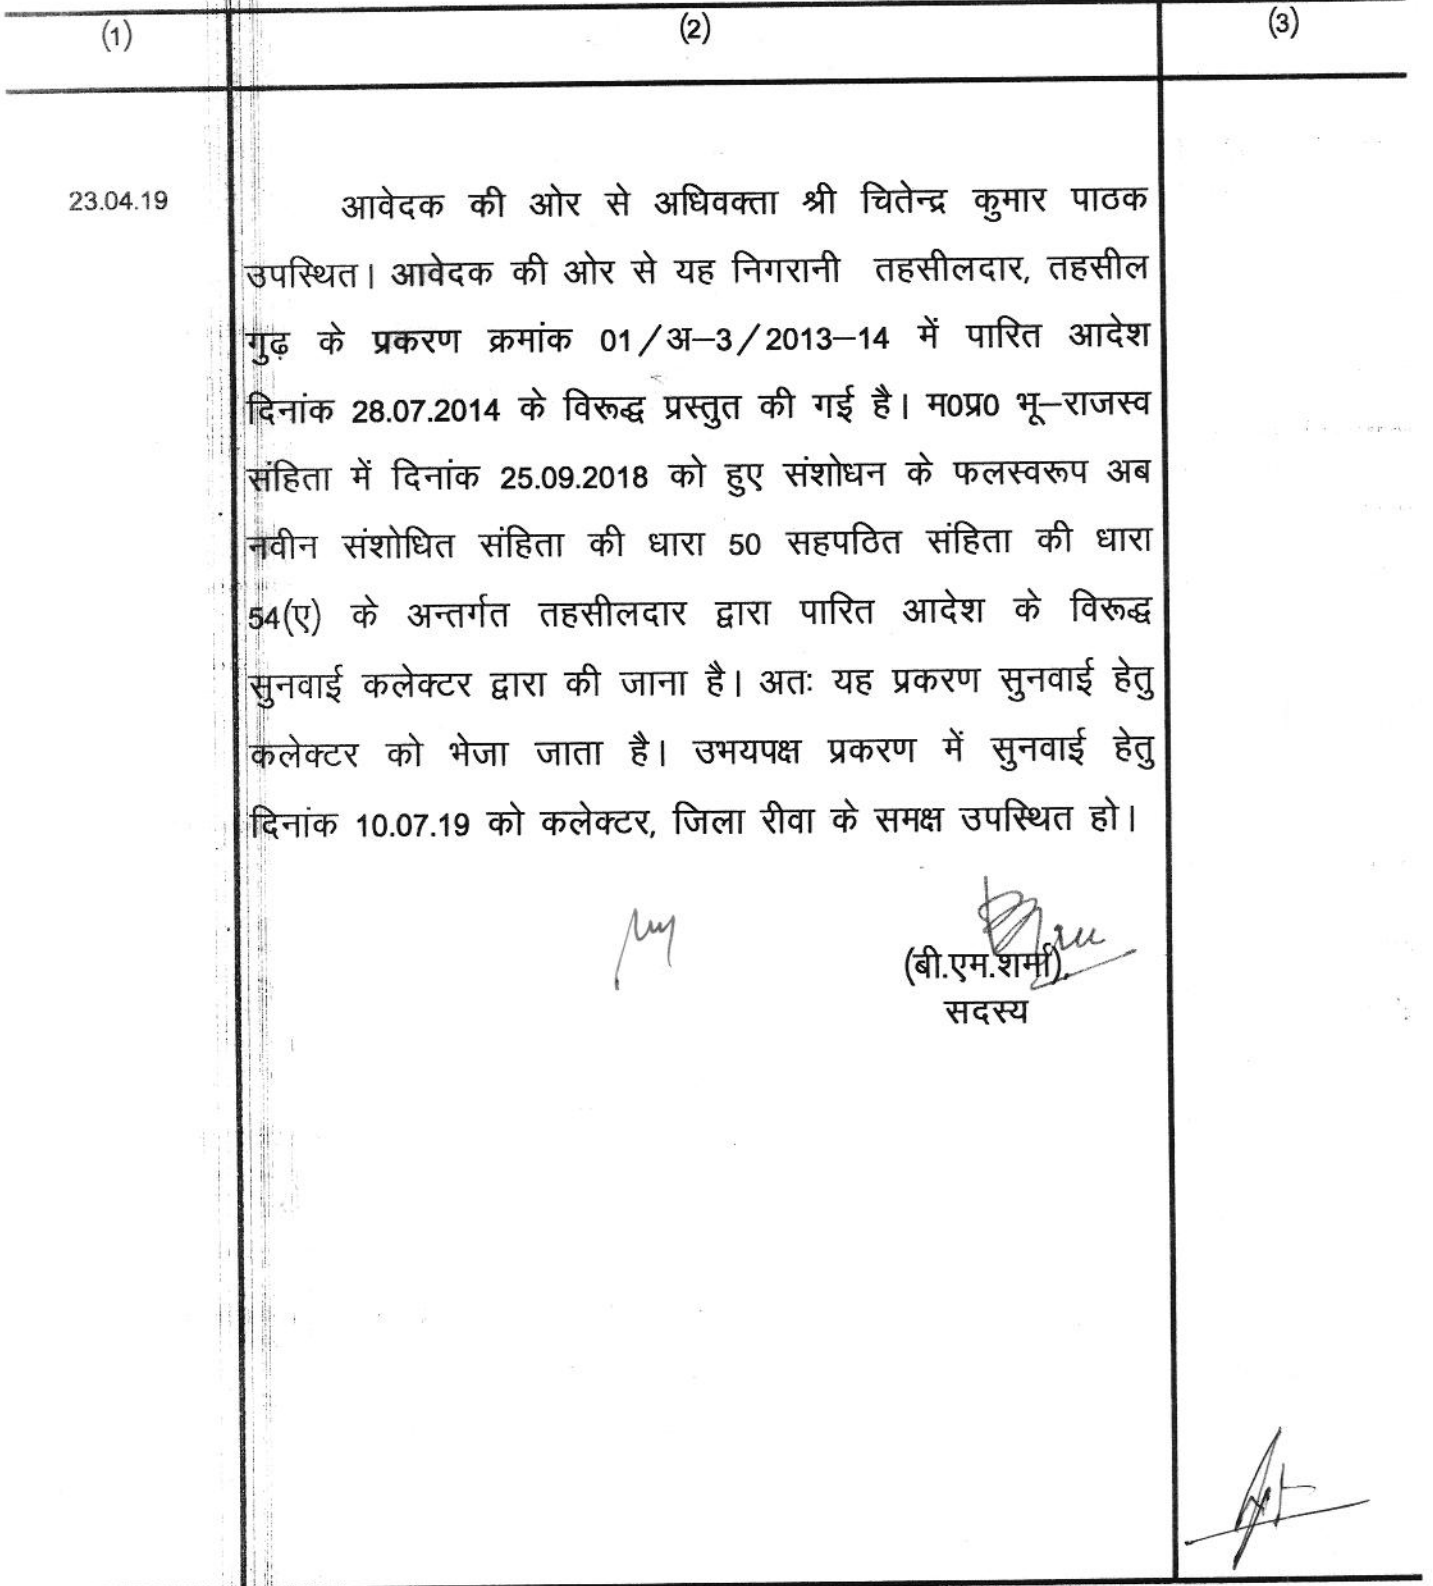 (1) (2) (3)
23.04.19 आवेदक की ओर से अधिवक्ता श्री चितेन्द्र कुमार पाठक
उपस्थित। आवेदक की ओर से यह निगरानी तहसीलदार, तहसील
गुढ़ के प्रकरण क्रमांक 01/अ–3/2013–14 में पारित आदेश
दिनांक 28.07.2014 के विरूद्ध प्रस्तुत की गई है। म0प्र0 भू–राजस्व
संहिता में दिनांक 25.09.2018 को हुए संशोधन के फलस्वरूप अब
नवीन संशोधित संहिता की धारा 50 सहपठित संहिता की धारा
54(ए) के अन्तर्गत तहसीलदार द्वारा पारित आदेश के विरूद्ध
सुनवाई कलेक्टर द्वारा की जाना है। अतः यह प्रकरण सुनवाई हेतु
कलेक्टर को भेजा जाता है। उभयपक्ष प्रकरण में सुनवाई हेतु
दिनांक 10.07.19 को कलेक्टर, जिला रीवा के समक्ष उपस्थित हो।
(बी.एम.शर्मा)
सदस्य